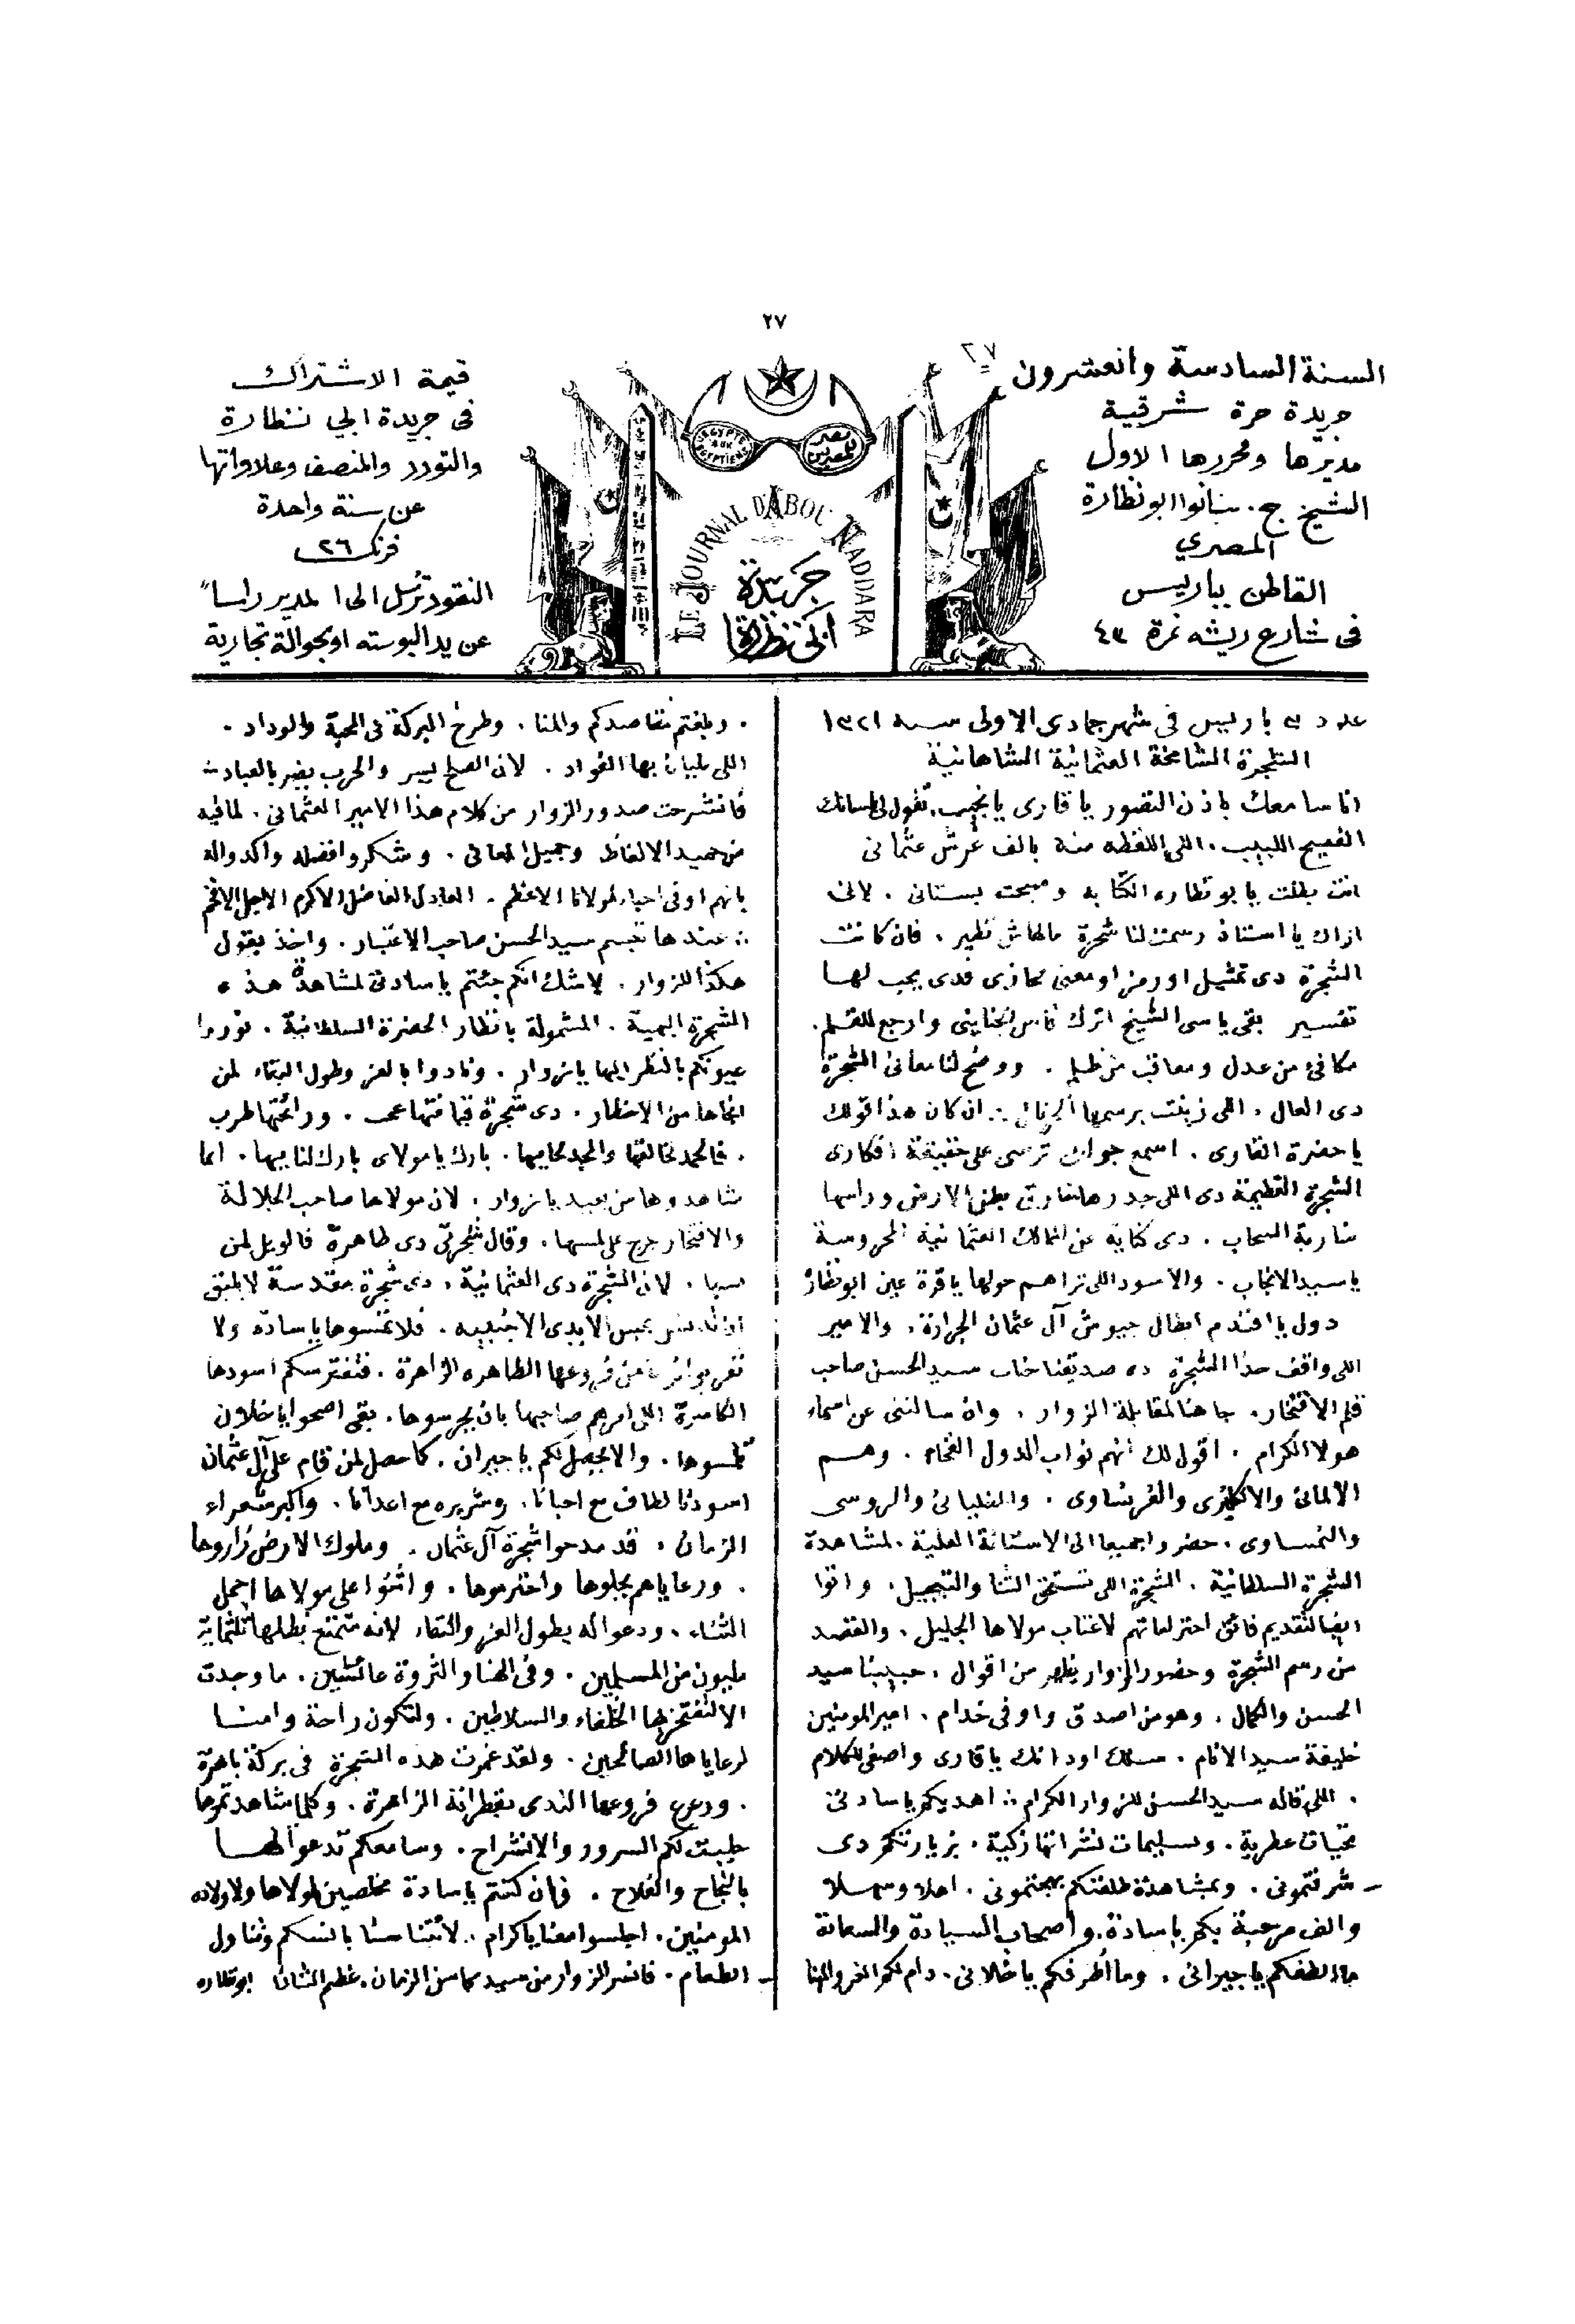 ٢٧
٢٧
السنة السادسة والعشرون
جريدة حرة شرقية
مديرها ومحررها الاول
الشيخ ج. سانوا ابو نظارة
المصري
القاطن بباريس
فى شارع ريشه نمرة ٤٣
EGYPTE AUX EGYPTIENS
مصر للمصريين
LE JOURNAL D'ABOU NADDARA
جريدة
ابى نظارة
قيمة الاشتراك
فى جريدة ابي نظارة
والتودد والمنصف وعلاواتها
عن سنة واحدة
فرنك ٢٦
النقود ترسل الى المدير راسا
عن يد البوسته او بحوالة تجارية
باريس فى شهر جمادى الاولى سنة ١٣٢١
الشجرة الشامخة العثمانية الشاهانية
انا سامعك باذن التصور يا قارى يا نجيب. تقول لى بلسانك
الفصيح اللبيب. اللى اللفظه منه بالف غرش عثمانى
انت بطلت يا بو نظاره الكتابه وصبحت بستانى. لانى
اراك يا استاذ رسمت لنا شجرة مالهاش نظير. فان كانت
الشجرة دى تمثيل او رمز او معنى مجازى فدى يجب لها
تفسير بقى ياسى الشيخ اترك فاس الجناينى وارجع للقلم.
مكافئ من عدل ومعاقب من ظلم. ووضح لنا معانى الشجرة
دى العال. اللى زينت برسمها الجرنال ∴ ان كان هذا قولك
يا حضرة القارى. اسمع جوابى ترسى على حقيقة افكارى
الشجرة العظيمة دى اللى جدرها بطن الارض وراسها
ضاربة السحاب. دى كناية عن الممالك العثمانية المحروسة
يا سيد الانجاب. والاسود اللى تراهم حولها يا قرة عين ابو نظارة
دول يا افندم ابطال جيوش آل عثمان الجرارة. والامير
اللى واقف حدا الشجرة ده صديقنا جناب سيد الحسن صاحب
قلم الافتخار. جا هنا لمقابلة الزوار. وان سالتنى عن اسماء
هولا الكرام. اقول لك انهم نواب الدول الفخام. وهم
الالمانى والانكليزى والفرنساوى. والطليانى والروسى
والنمساوى. حضروا جميعا الى الاستانة العلية. لمشاهدة
الشجرة السلطانية. الشجرة اللى تستحق الثنا والتبجيل. واتوا
ايضا لتقديم فائق احتراماتهم لاعتاب مولاها الجليل. والقصد
من رسم الشجرة وحضور الزوار يظهر من اقوال. حبيبنا سيد
الحسن والكمال. وهو من اصدق واوفى خدام. امير المومنين
خليفة سيد الانام. سلك اودانك يا قارى واصغى للكلام
. اللى قاله سيد الحسن للزوار الكرام ∴ اهديكم يا سادتى
تحيات عطرية. وتسليمات نشراتها زكية. بزيارتكم دى
شرفتمونى. وبمشاهدة طلعتكم بهجتمونى. اهلا وسهلا
والف مرحبة بكم يا سادة. واصحاب السيادة والسعادة
ما الطفكم يا جيرانى. وما اظرفكم يا خلانى. دام لكم العز والهنا
. وبلغتم مقاصدكم والمنا. وطرح البركة فى المحبة والوداد.
اللى مليان بها الفواد. لان الصلح يسر والحرب يضر بالعباد ∴
فانشرحت صدور الزوار من كلام هذا الامير العثمانى. لما فيه
من حميد الالفاظ وجميل المعانى. وشكروا فضله واكدوا له
بانهم اوفى احباء لمولانا الاعظم. العادل الفاضل الاكرم الاجل الافخم
∴ عندها تبسم سيد الحسن صاحب الاعتبار. واخذ يقول
هكذا للزوار. لا شك انكم جئتم يا سادتى لمشاهدة هذه
الشجرة البهية. المشمولة بانظار الحضرة السلطانية. نوروا
عيونكم بالنظر اليها يا زوار. ونادوا بالعز وطول البقاء لمن
انجاها من الاخطار. دى شجرة قيافتها عجب. ورائحتها طرب
. فالحمد لخالقها والمجد لحاميها. بارك يا مولاى بارك لنا فيها. انما
شاهدوها من بعيد يا زوار. لان مولاها صاحب الجلالة
والافتخار حرج على لمسها. وقال شجرتى دى طاهرة فالويل لمن
. لان الشجرة دى العثمانية. دى شجرة مقدسة لا يليق
الايدى الاجنبيه. فلا تمسوها يا سادة ولا
تقربوا من فروعها الطاهره الزاهرة. فتفترسكم اسودها
الكاسرة اللى امرهم صاحبها بان يحرسوها. بقى اصحوا يا خلان
تلمسوها. والا يحصل لكم يا جيران. كما حصل لمن قام على آل عثمان
اسودنا لطاف مع احبانا. وشريره مع اعدانا. واكبر شعراء
الزمان. قد مدحوا شجرة آل عثمان. وملوك الارض زاروها
. ورعاياهم بجلوها واحترموها. واثنوا على مولاها اجمل
الثناء. ودعوا له بطول العز والبقاء لانه متمتع بظلها ثلثماية
مليون من المسلمين. وفى الهنا والثروة عائشين. ما وجدت
الا لتفتخر بها الخلفاء والسلاطين. ولتكون راحة وامنا
لرعاياها الصالحين. ولقد غمرت هذه الشجرة فى بركة باهرة
. فروعها الندى بقطراته الزاهرة. وكلما شاهد تموها
جلبت لكم السرور والانشراح. وسامعكم تدعوا لها
بالنجاح والفلاح. فان كنتم يا سادة مخلصين لمولاها ولاولاده
المومنين. اجلسوا معنا يا كرام. لائتناسنا بانسكم وتناول
الطعام. فانسر الزوار من سيد محاسن الزمان. عظيم الشان ابو نظاره